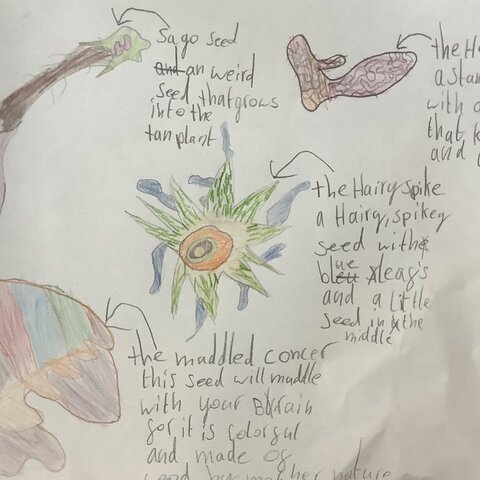 Sago seed
and an weird
seed that grows
into the
tan plant
the Ha
a stam
with a
that k
and a
the Hairy spike
a Hairy, spikey
seed with
bleu ue leag's
and a little
seed in the
middle
the muddled concer
this seed will muddle
with your Brain
for it is colorful
and made of
by mother nature